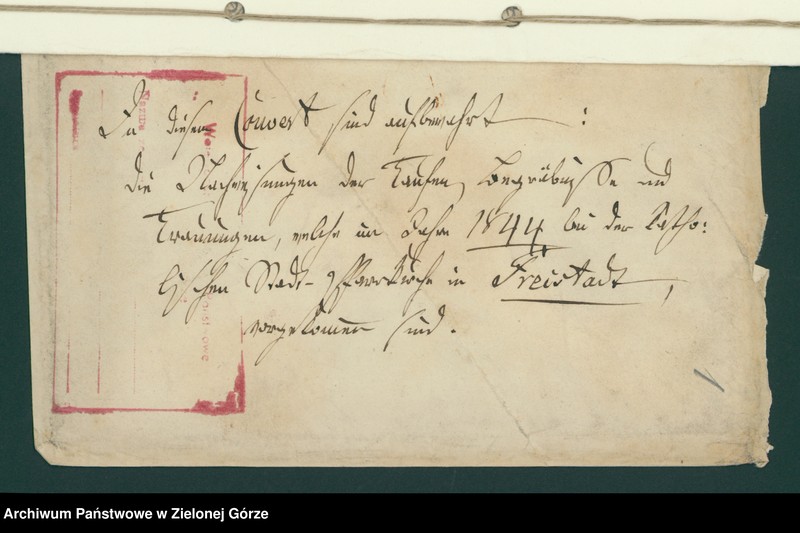 In diesem Couvert sind aufbewahrt :
die Nachweisungen der Taufen, Begräbnisse und
Trauungen, welche im Jahre 1844 bei der katho:
lischen Stadt-Pfarrkirche in Freistadt,
vorgekommen sind.
Archiwum Państwowe w Zielonej Górze